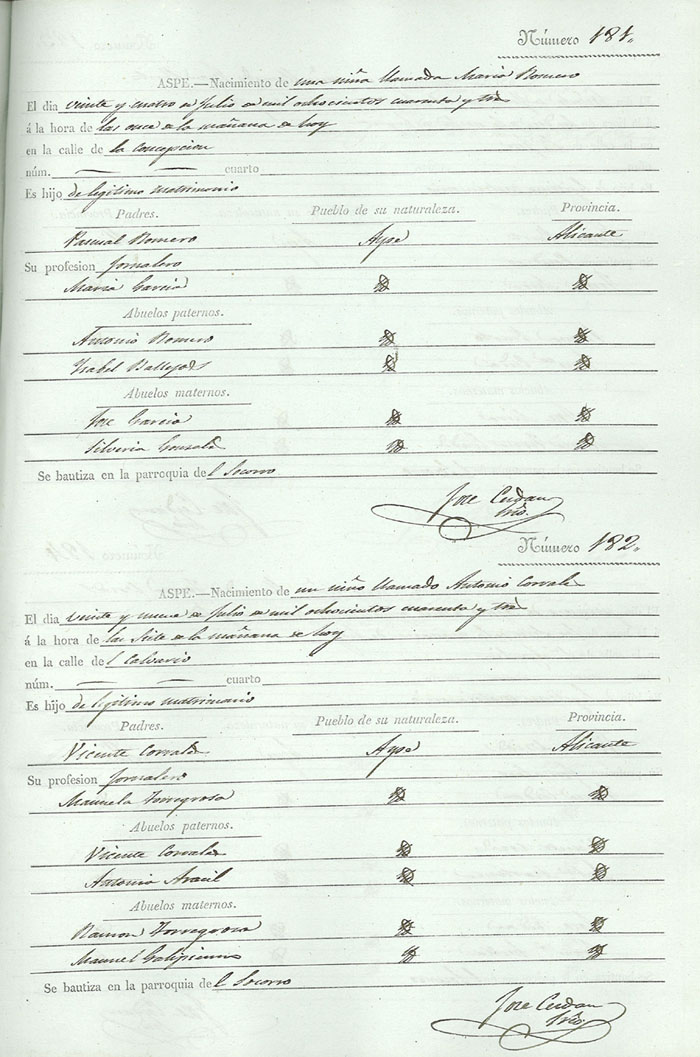 Número 181.
ASPE.—Nacimiento de una niña llamada Maria Romero
El dia veinte y cuatro de Julio de mil ochocientos cuarenta y tres
á la hora de las once de la mañana de hoy
en la calle de la Concepcion
núm. — — cuarto
Es hijo de legitimo matrimonio
Padres. Pueblo de su naturaleza. Provincia.
Pascual Romero Aspe Alicante
Su profesion Jornalero
Maria Garcia
Abuelos paternos.
Antonio Romero
Ysabel
Abuelos maternos.
Jose Garcia
Silveria
Se bautiza en la parroquia del Socorro
Jose Cerdan
Srio.
Número 182.
ASPE.—Nacimiento de un niño llamado Antonio
El dia veinte y nueve de Julio de mil ochocientos cuarenta y tres
á la hora de las siete de la mañana de hoy
en la calle del Calvario
núm. — — cuarto
Es hijo de legitimo matrimonio
Padres. Pueblo de su naturaleza. Provincia.
Vicente Aspe Alicante
Su profesion Jornalero
Manuela Torregrosa
Abuelos paternos.
Vicente
Antonia Aracil
Abuelos maternos.
Ramon Torregrosa
Se bautiza en la parroquia del Socorro
Jose Cerdan
Srio.